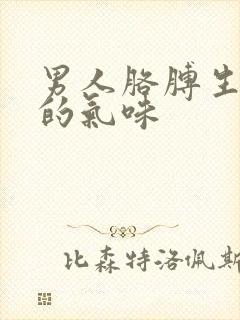 男人胳膊生
的氣味
比森特洛佩斯